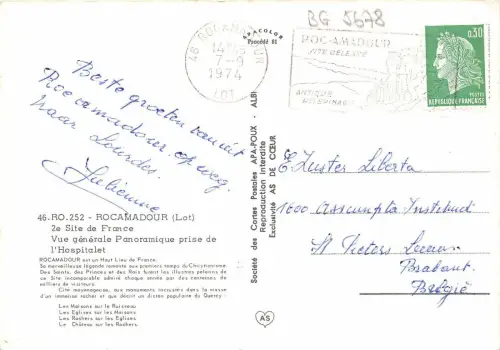 BG 5678
APACOLOR
Procédé 81
46 ROCAMADOUR
7-9
1974
LOT
ROC-AMADOUR
SITE CELEBRE
ANTIQUE
PELERINAGE
0,30
POSTES
REPUBLIQUE FRANÇAISE
Beste groeten vanuit
Rocamadour op weg
naar Lourdes.
Julienne
46.RO.252 - ROCAMADOUR (Lot)
2e Site de France
Vue générale Panoramique prise de
l'Hospitalet
ROCAMADOUR est un Haut Lieu de France.
Sa merveilleuse légende remonte aux premiers temps du Christianisme.
Des Saints, des Princes et des Rois furent les illustres pèlerins de
ce Site incomparable admiré chaque année par des centaines de
milliers de visiteurs.
Cité moyenageuse, aux monuments incrustés dans la masse
d'un immense rocher et que décrit un dicton populaire du Quercy :
Les Maisons sur le Ruisseau
Les Eglises sur les Maisons
Les Rochers sur les Eglises
Le Château sur les Rochers
Société des Cartes Postales APA-POUX - ALBI
Reproduction interdite
Exclusivité AS DE CŒUR
AS
E. Zuster Liberta
1600 Assumpta Instituut
St Pieters Leeuw
Brabant.
België